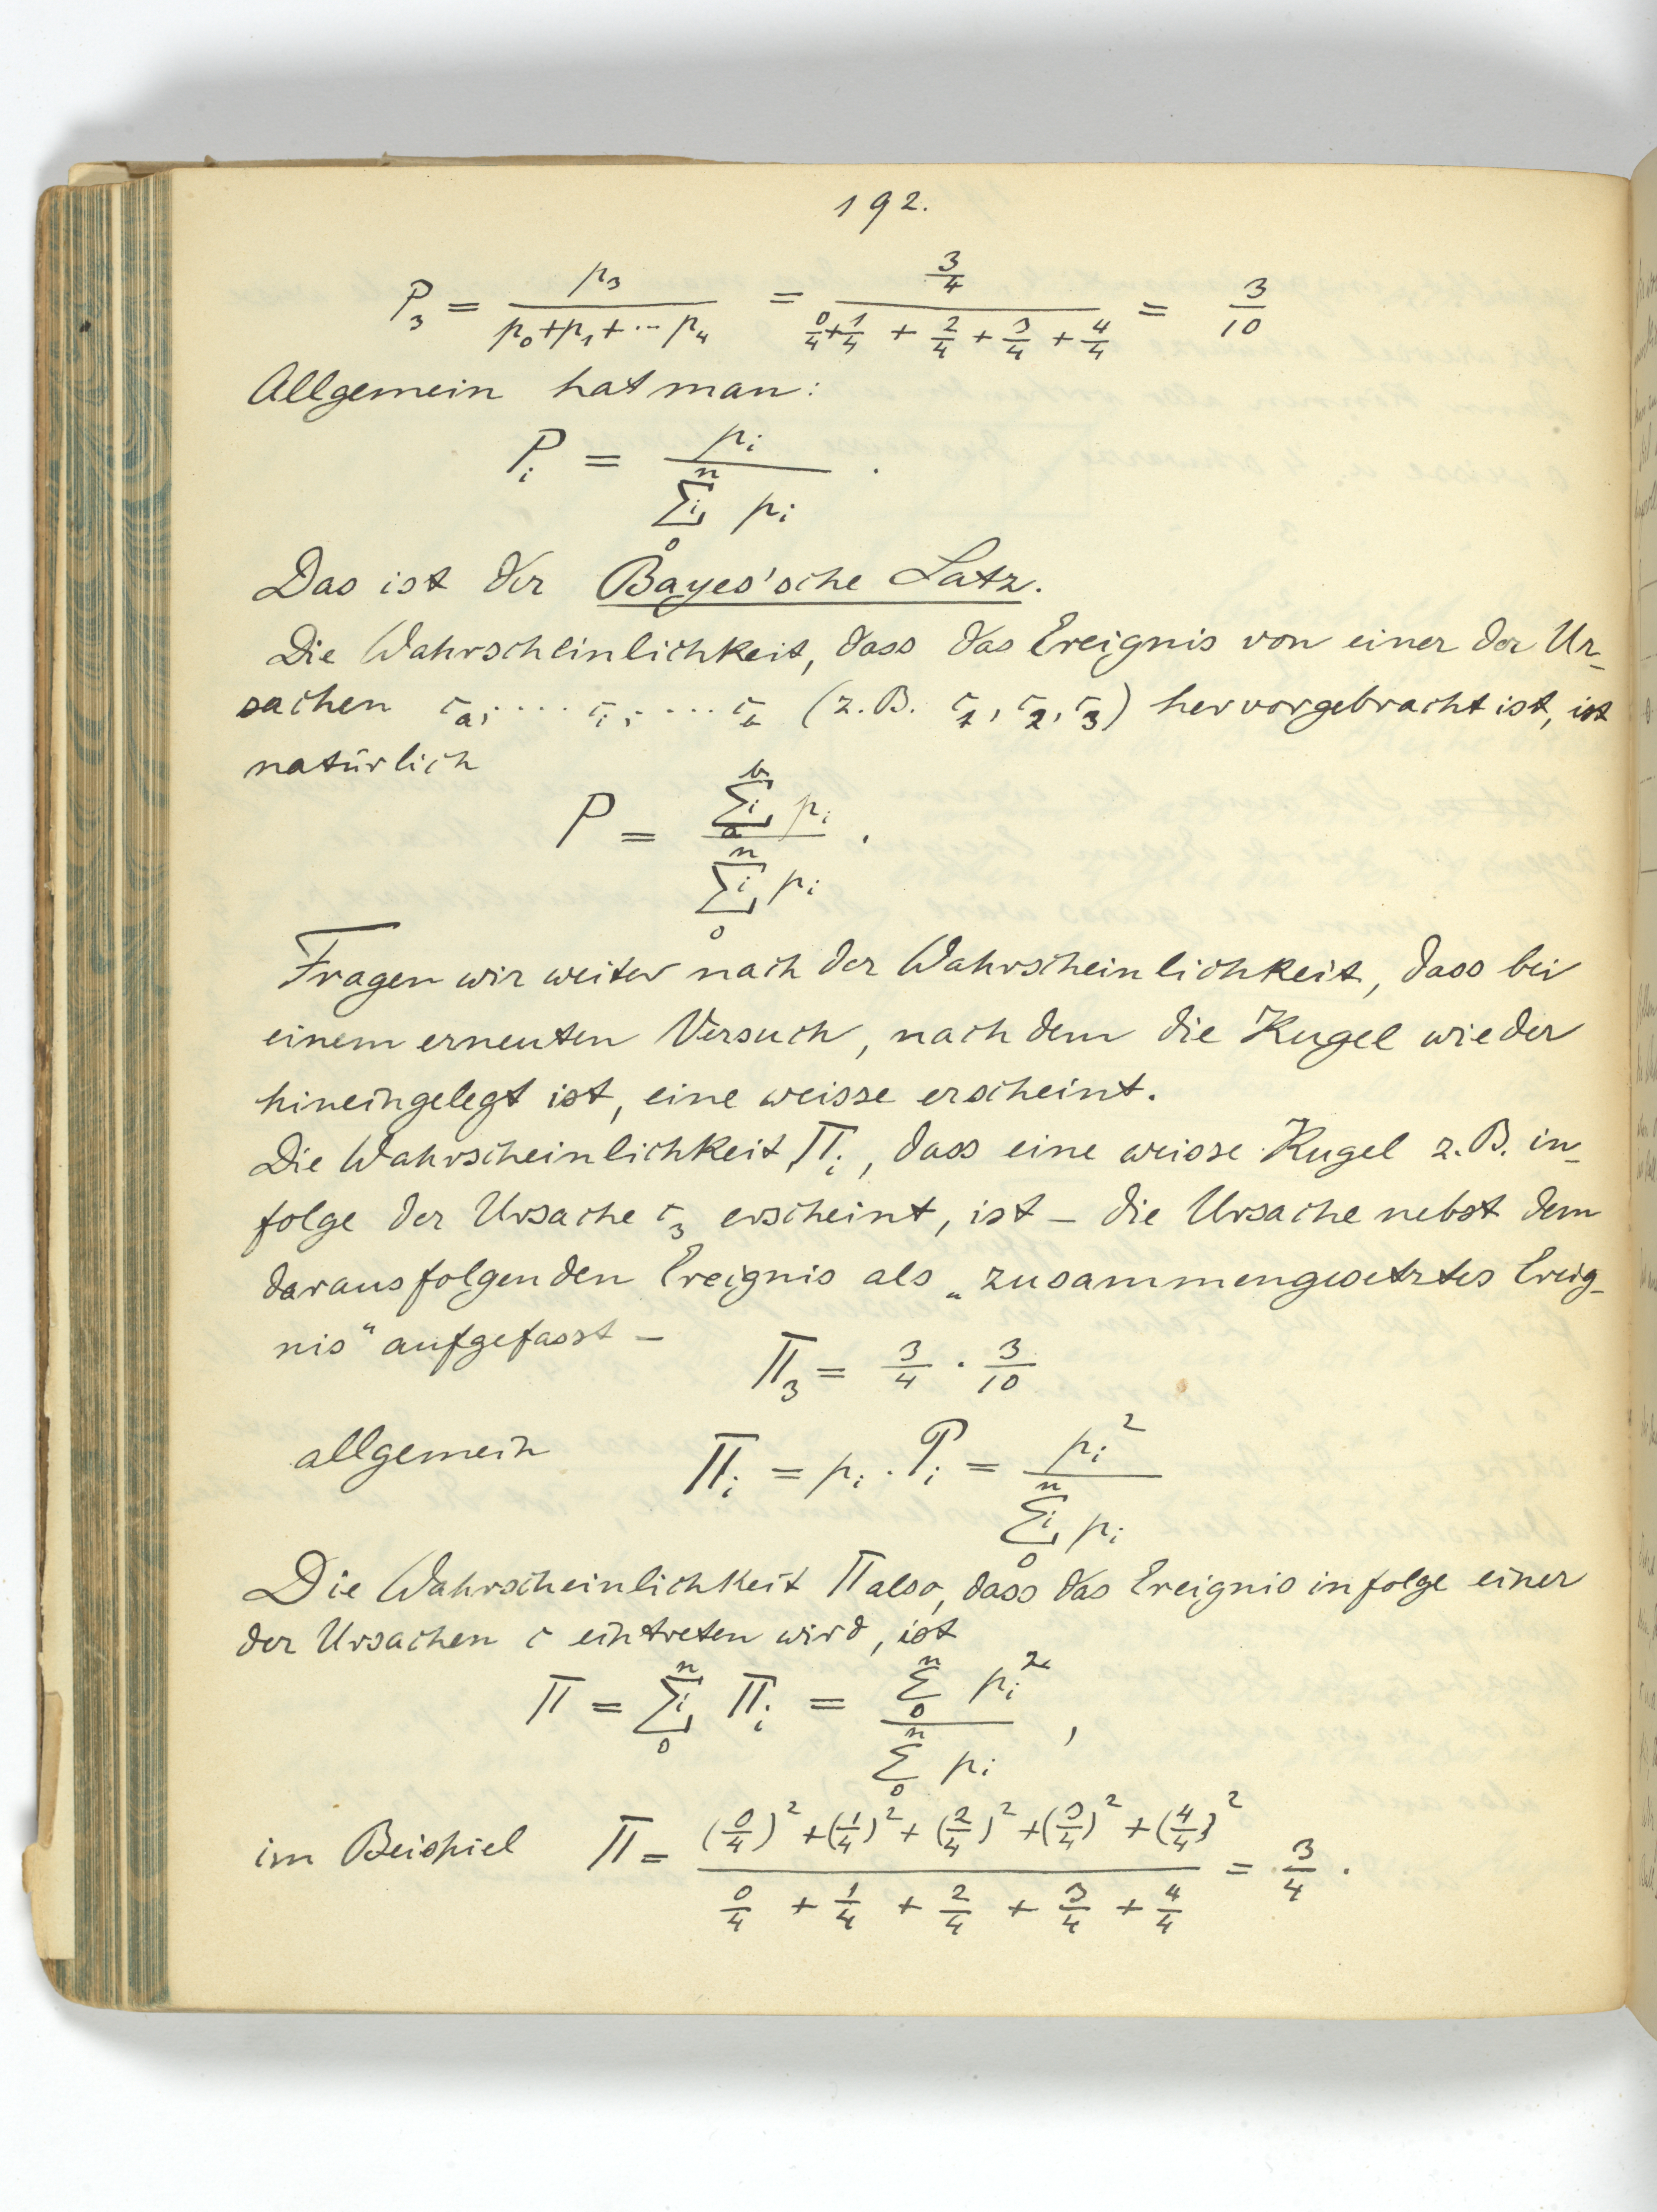 192.
P₃ = p₃ / (p₀+p₁+··· p₄) = (3/4) / (0/4+1/4 + 2/4 + 3/4 + 4/4) = 3/10
Allgemein hat man:
Pᵢ = pᵢ / (ⁿΣᵢ₀ pᵢ) .
Das ist der Bayes'sche Satz.
Die Wahrscheinlichkeit, dass das Ereignis von einer der Ur-
sachen c_a, ···· cᵢ, ··· c_b (z.B. c₁, c₂, c₃) hervorgebracht ist, ist
natürlich
P = (ᵇΣᵢₐ pᵢ) / (ⁿΣᵢ₀ pᵢ) .
Fragen wir weiter nach der Wahrscheinlichkeit, dass bei
einem erneuten Versuch, nach dem die Kugel wieder
hineingelegt ist, eine weisse erscheint.
Die Wahrscheinlichkeit Πᵢ, dass eine weisse Kugel z.B. in-
folge der Ursache c₃ erscheint, ist – die Ursache nebst dem
darausfolgenden Ereignis als „zusammengesetztes Ereig-
nis" aufgefasst –
Π₃ = 3/4 · 3/10
allgemein Πᵢ = pᵢ . Pᵢ = pᵢ² / (ⁿΣᵢ₀ pᵢ)
Die Wahrscheinlichkeit Π also, dass das Ereignis infolge einer
der Ursachen c eintreten wird, ist
Π = ⁿΣᵢ₀ Πᵢ = (ⁿΣ₀ pᵢ²) / (ⁿΣ₀ pᵢ) ,
im Beispiel Π = ((0/4)² + (1/4)² + (2/4)² + (3/4)² + (4/4)²) / (0/4 + 1/4 + 2/4 + 3/4 + 4/4) = 3/4 .